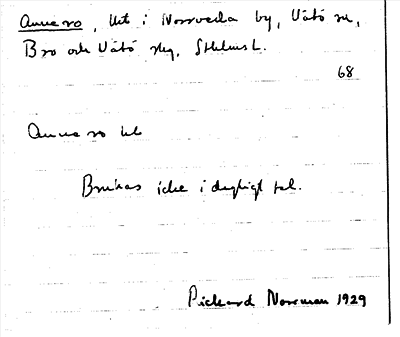 Annero, lht i Norrveda by, Vätö sn,
Bro och Vätö skg, Sthlms l.
68
Annero lht
Brukas icke i dagligt tal.
Rickard Norrman 1929